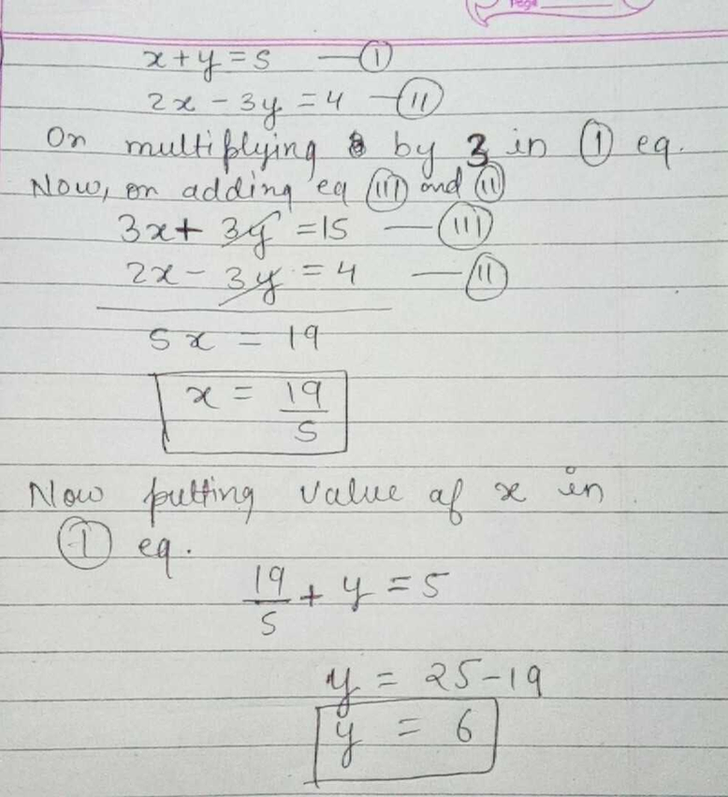 Page
x + y = 5 — (I)
2x - 3y = 4 — (II)
On multiplying by 3 in (I) eq.
Now, on adding eq (III) and (II)
3x + 3y = 15 — (III)
2x - 3y = 4 — (II)
5x = 19
x = 19/5
Now putting value of x in
(I) eq.
19/5 + y = 5
y = 25-19
y = 6